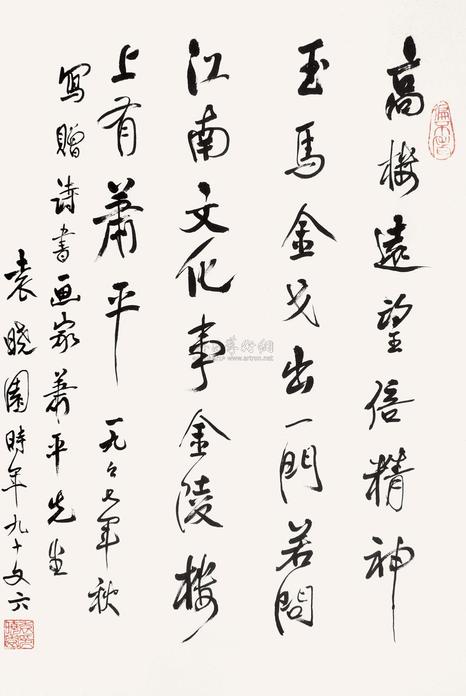 高楼遠望倍精神
玉馬金戈出一門若問
江南文化事金陵楼
上有蕭平 一九々七年秋
寫贈诗書画家蕭平先生
袁晓園時年九十又六
www.artron.net